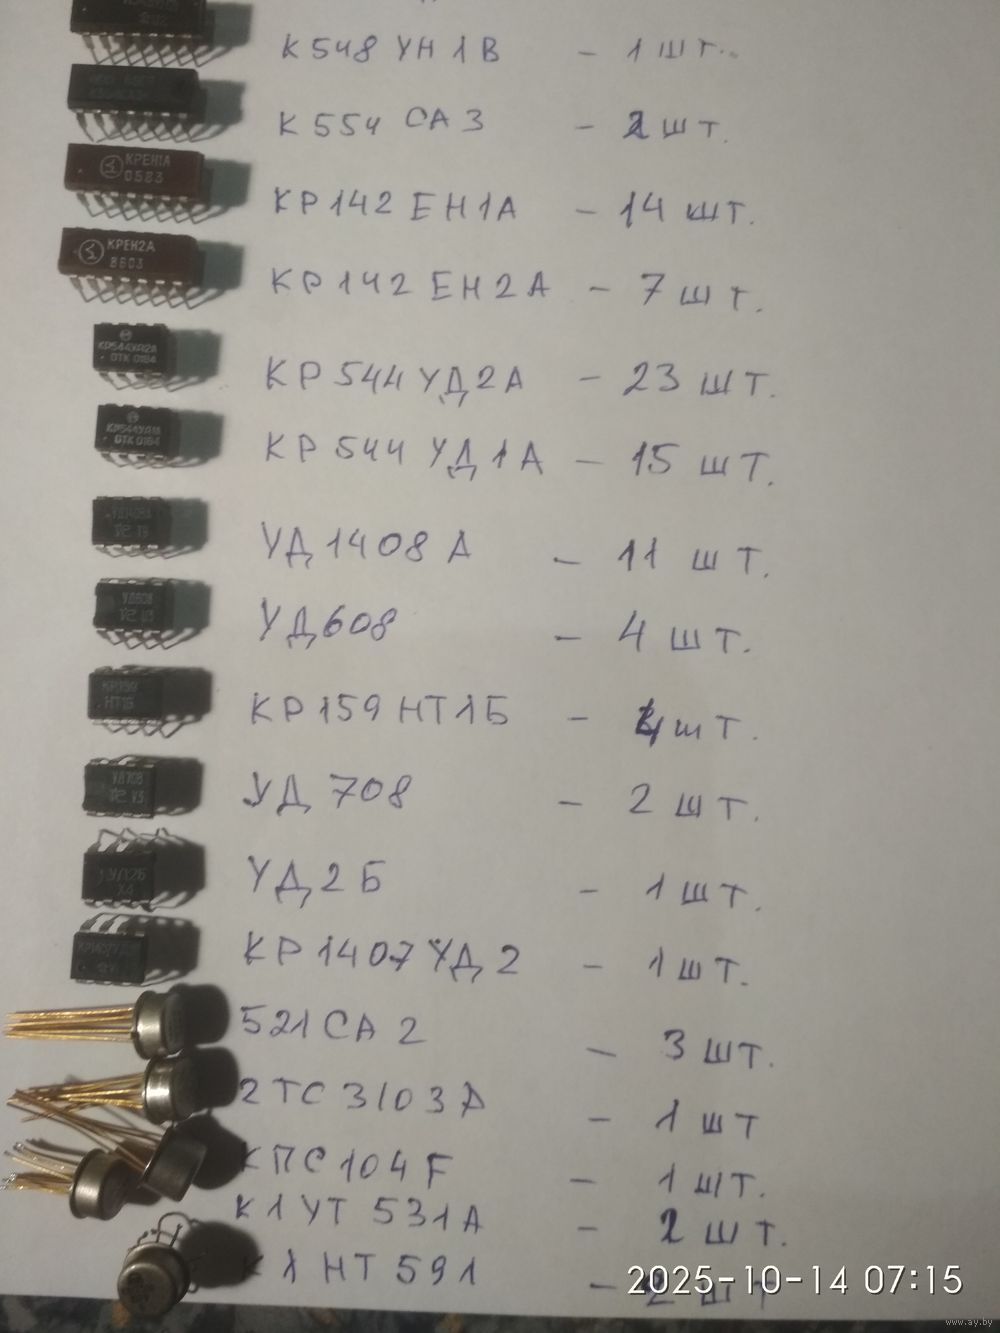 К548УН1В – 1 шт.
К554СА3 – 2 шт.
КРЕН1А
0583
КР142ЕН1А – 14 шт.
КРЕН2А
8603
КР142ЕН2А – 7 шт.
КР544УД2А
ОТК 0184
КР544УД2А – 23 шт.
КР544УД1А
ОТК 0184
КР544УД1А – 15 шт.
УД1408А
УД1408А – 11 шт.
УД608
УД608 – 4 шт.
КР159
НТ1Б
КР159НТ1Б – шт.
УД708
УД708 – 2 шт.
УД2Б
Х4
УД2Б – 1 шт.
КР1407УД2 – 1 шт.
521СА2 – 3 шт.
2ТС3103А – 1 шт
КПС104F – 1 шт.
К1УТ531А – 2 шт.
К1НТ591 – 2 шт
2025-10-14 07:15
www.ay.by